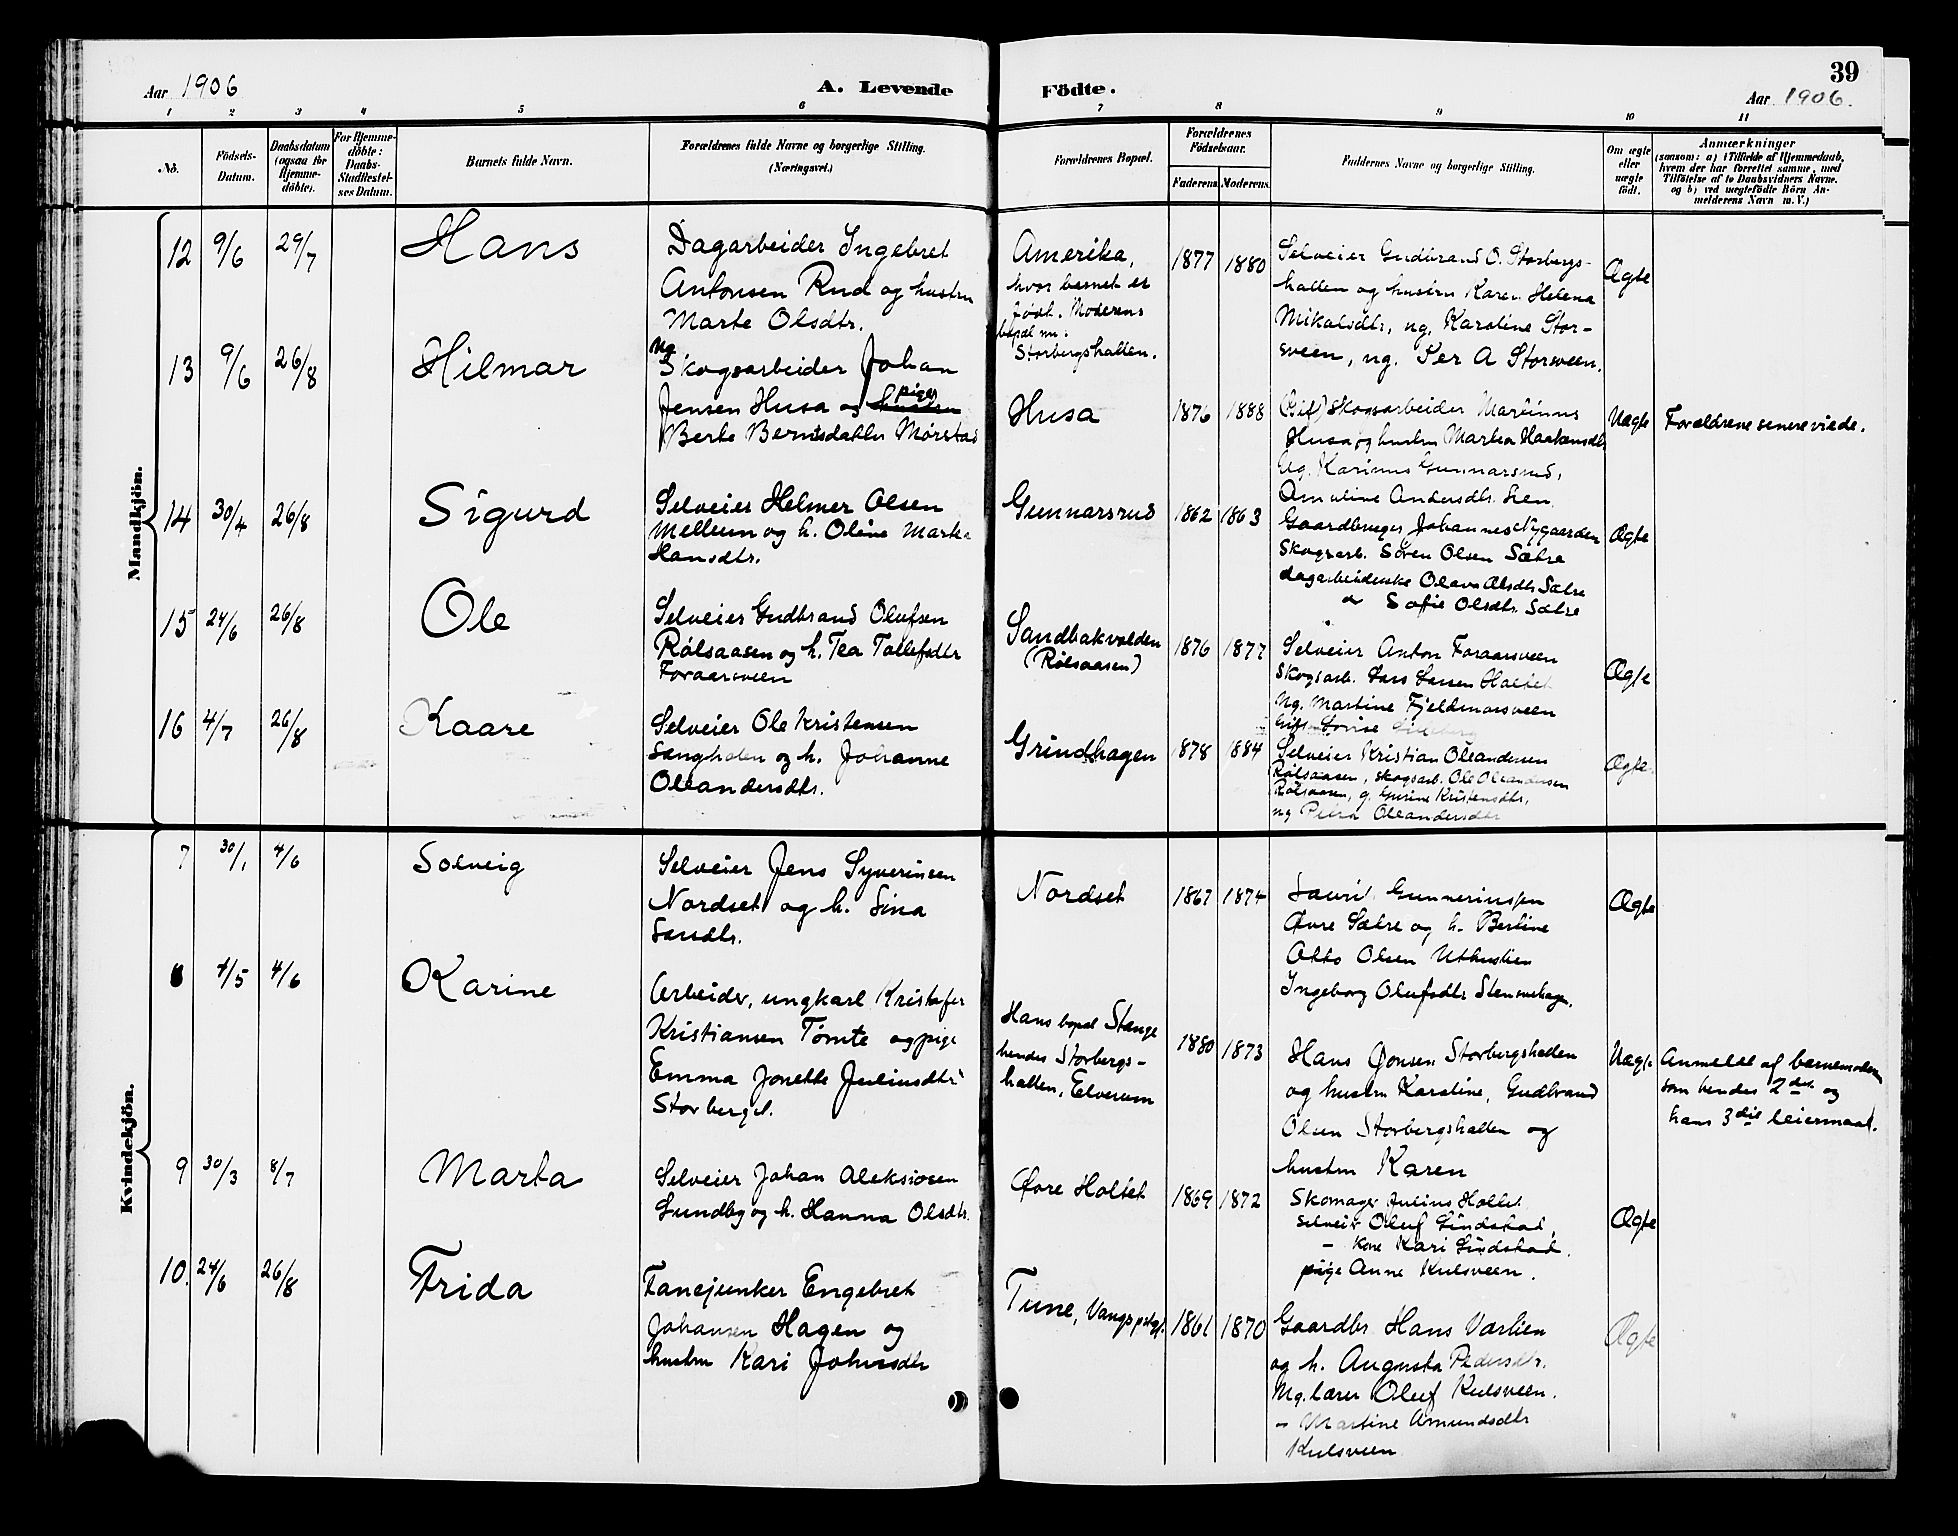 39
Aar 1906
A. Levende
Födte.
Aar 1906.
1 2 3 4 5 6 7 8 9 10 11
No.
Födsels-
Datum.
Daabsdatum
(ogsaa for
Hjemme-
döbte).
For Hjemme-
döbte:
Daabs-
Stadfestel-
ses Datum.
Barnets fulde Navn.
Forældrenes fulde Navne og borgerlige Stilling.
(Næringsvei.)
Forældrenes Bopæl.
Forældrenes
Födselsaar.
Faderens Moderens
Faddernes Navne og borgerlige Stilling.
Om ægte
eller
uægte
födt.
Anmærkninger
(saasom: a) i Tilfælde af Hjemmedaab,
hvem der har forrettet samme, med
Tilföielse af to Daabsvidners Navne.
og b) ved uægtefödte Börn An-
melderens Navn m. V.)
Mandkjön.
12 9/6 29/7
Hans
Dagarbeider Ingebret
Antonsen Rud og hustru
Marte Olsdtr.
Amerika,
hvor barnet er
født. Moderens
bopæl nu:
Storbergshatten.
1877 1880
Selveier Gudbrand O. Storbergs-
hatten og hustru Karen Helena
Mikalsdtr, ug. Karoline Stor-
sveen, ug. Per A Storsveen.
Ægte
13 9/6 26/8
Hilmar
Ug
Skogsarbeider Johan
Jensen Husa og hustru pige
Berte Berntsdatter Mørstad
Husa
1876 1888
(Gif) Skogsarbeider Martinus
Husa og hustru Martea Haakensdtr.
Ug. Karinus Gunnarsrud,
Amaline Andersdtr. Lien
Uægte
Forældrene senere viede.
14 30/4 26/8
Sigurd
Selveier Helmer Olsen
Mellem og h. Oline Marte
Hansdtr.
Gunnarsrud
1862 1863
Gaardbruger Johannes Nygaarden
Skogsarb. Søren Olsen Sætre
dagarbeiderske Olava Olsdtr Sætre
Sofie Olsdtr. Sætre
Ægte
15 24/6 26/8
Ole
Selveier Gudbrand Olufsen
Rølsaasen og h. Tea Tollefsdtr
Foraarsveen
Sandbakvolden
(Rølsaasen)
1876 1877
Selveier Anton Foraarsveen
Skogsarb. Lars Larsen Holtet
Ug. Martine Fjeldmorsveen
Ægte
16 4/7 26/8
Kaare
Selveier Ole Kristensen
Sængholen og h. Johanne
Oleandersdtr.
Grindhagen
1878 1884
Selveier Kristian Oleandersen
Rølsaasen, skogsarb. Ole Oleandersen
Rølsaasen, g. Gurine Kristensdtr,
ug Petra Oleandersdtr
Ægte.
Kvindekjön.
7 30/1 4/6
Solveig
Selveier Jens Syverinsen
Nordset og h. Lina
Larsdtr.
Nordset
1867 1874
Laurits Gunnerinssen
Øvre Sætre og h. Bertine
Otto Olsen Uthuslien
Ingeborg Olufsdtr Stensvehagen.
Ægte
8 4/5 4/6
Karine
Arbeider, ungkarl Kristofer
Kristiansen Tømte og pige
Emma Jonette Juliusdtr
Storbergst.
Hans bopæl Stange
hendes Storbergs-
hatten, Elverum
1880 1873
Hans Jonsen Storbergshatten
og hustru Karoline, Gudbrand
Olsen Storbergshatten og
hustru Karen
Uægte
Anmeldt af barnemoderen
som hendes 2det og
hans 3die leiermaal.
9 30/3 8/7
Marta
Selveier Johan Aleksiosen
Lundby og h. Hanna Olsdtr.
Øvre Holtet
1869 1872
Skomager Julius Holtet
selveier Oluf Lindstad,
— kone Kari Lindstad.
pige Anne Kulsveen.
Ægte
10. 24/6 26/8
Frida
Fanejunker Engebret
Johansen Hagen og
hustru Kari Johnsdtr
Tune, Vangs pstgj.
1861 1870
Gaardbr. Hans Varlien
og h. Augusta Pedersdtr.
Ug. lærer Oluf Kulsveen.
— Martine Amundsdtr
Kulsveen
Ægte